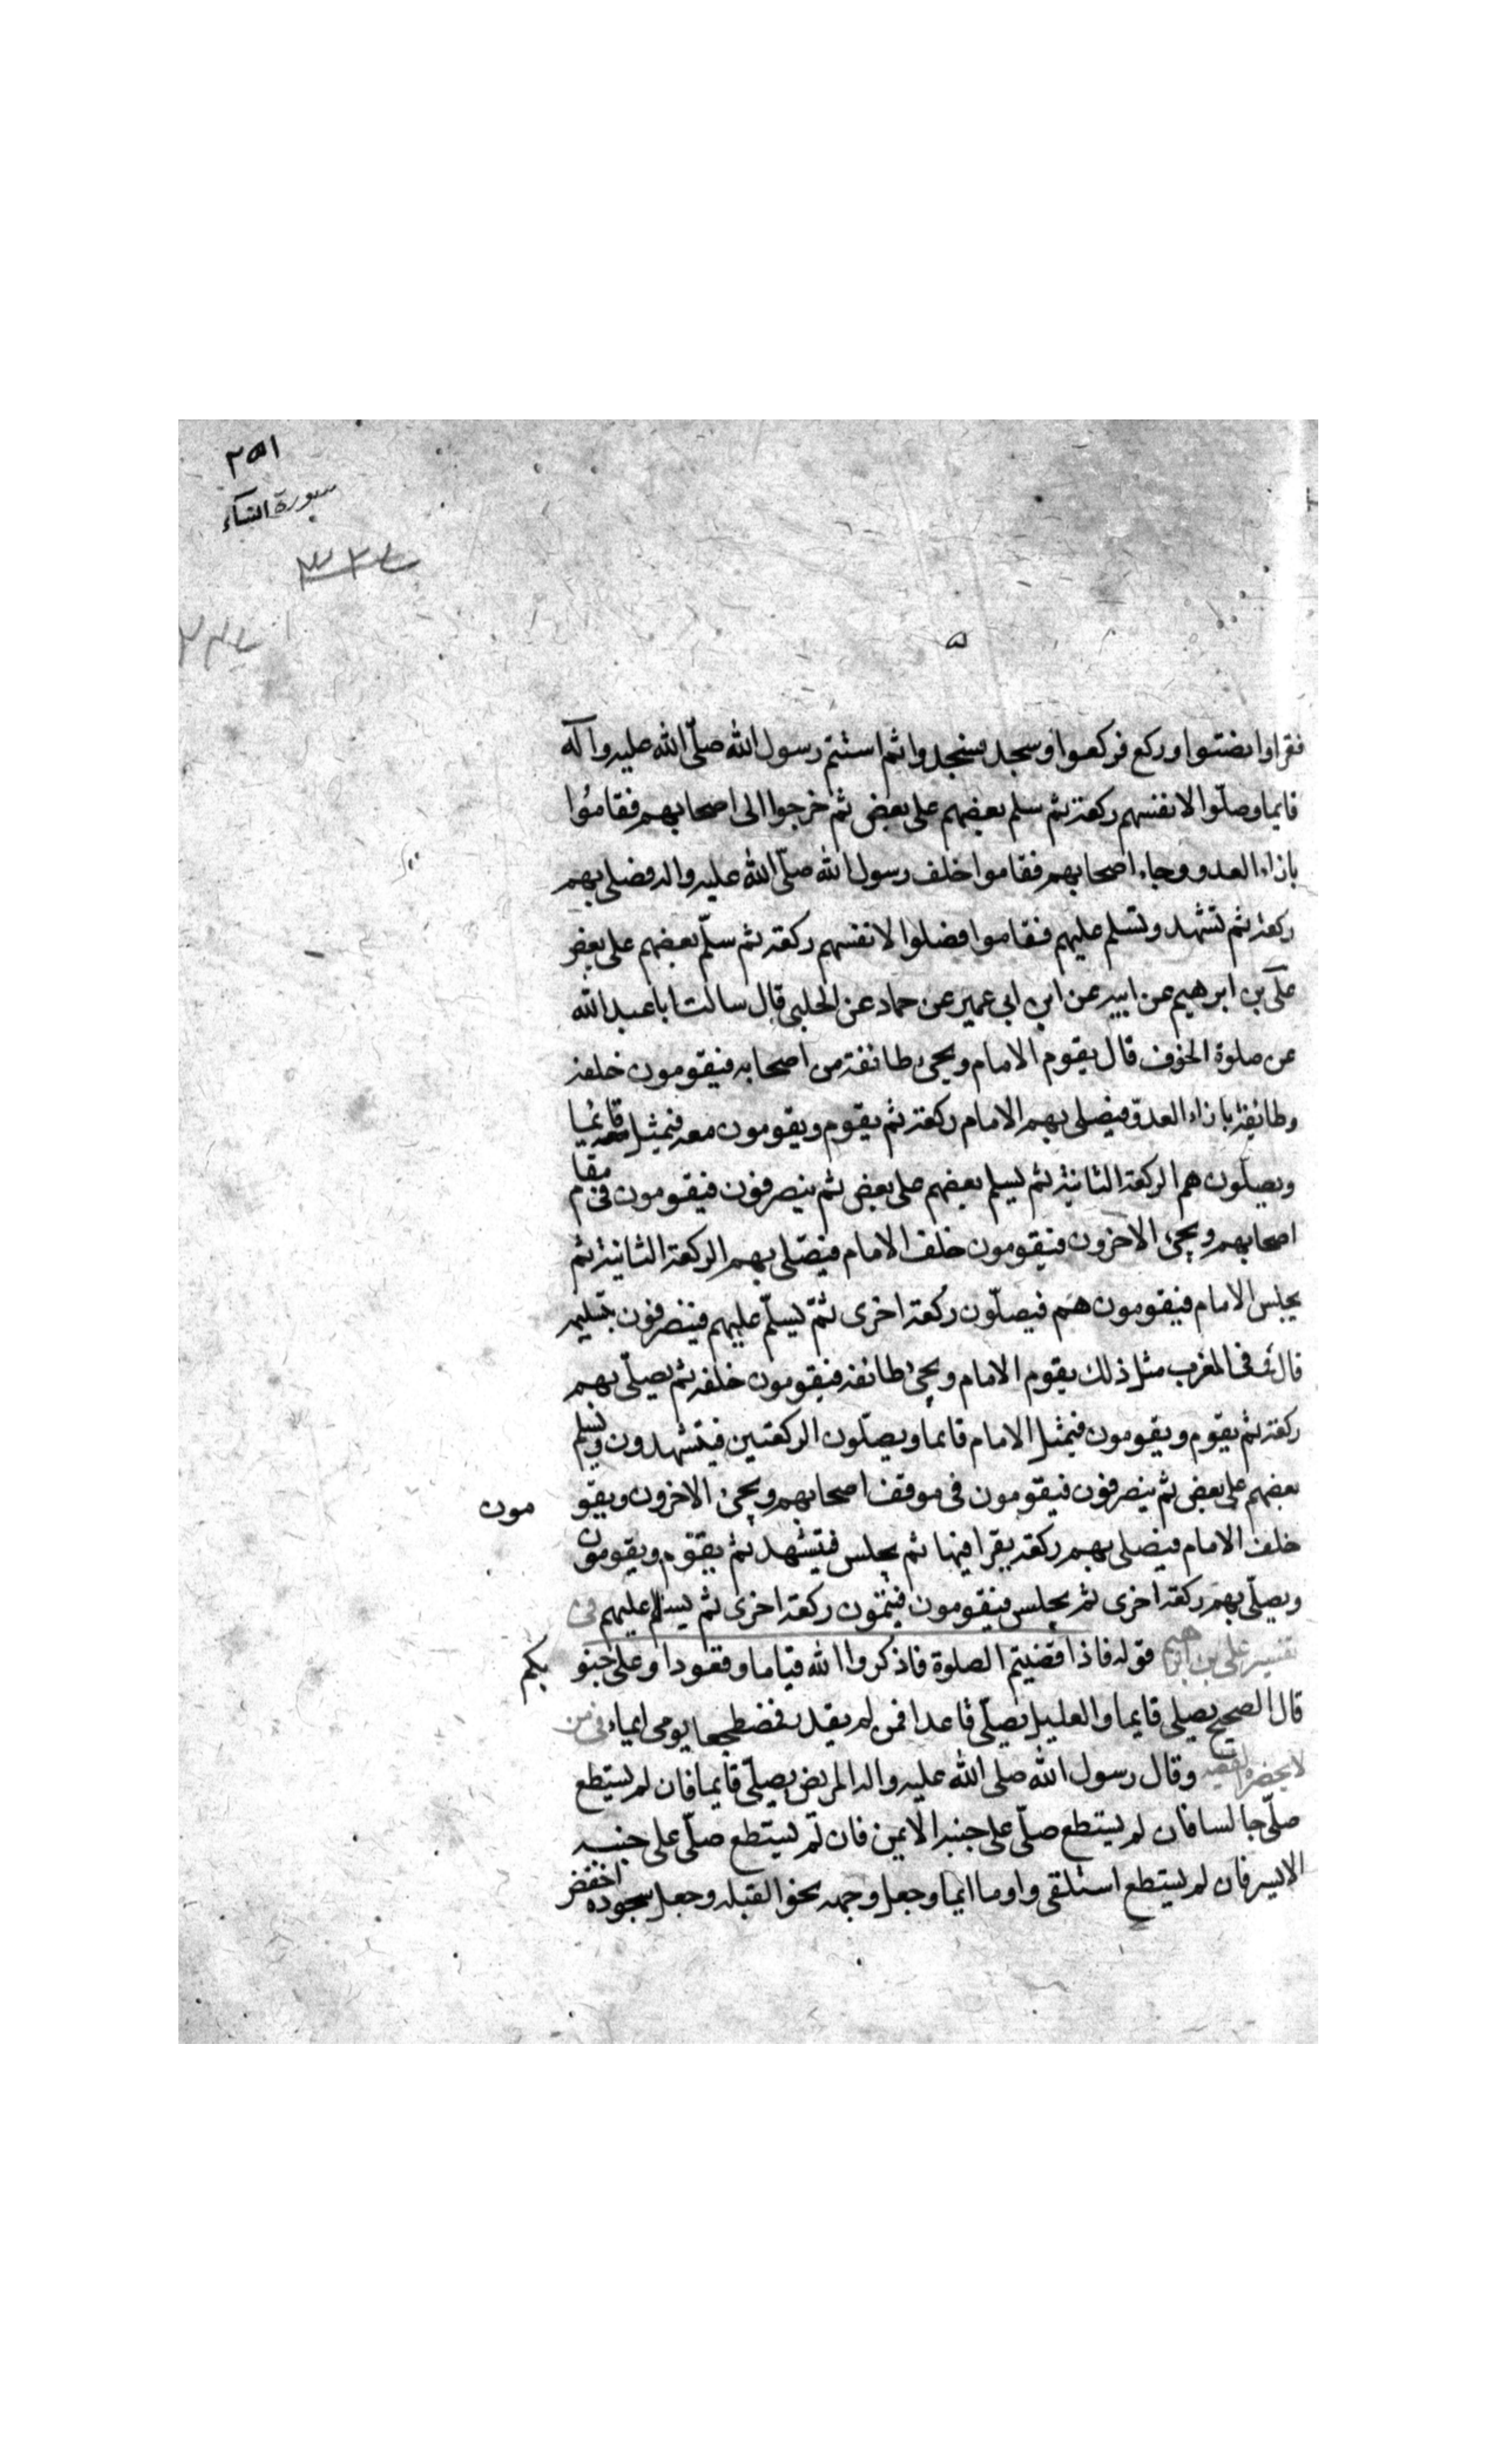 ٢٥١
سورة النساء
٣٢٤
فقرا وانصتوا وركع فركعوا وسجد فسجدوا ثم استتم رسول الله صلّى الله عليه وآله
قايما وصلّوا لانفسهم ركعة ثم سلم بعضهم على بعض ثم خرجوا الى اصحابهم فقاموا
بازاء العدو وجاء اصحابهم فقاموا خلف رسول الله صلّى الله عليه واله فصلى بهم
ركعة ثم تشهد وتسلم عليهم فقاموا فصلوا لانفسهم ركعة ثم سلّم بعضهم على بعض
على بن ابرهيم عن ابيه عن ابن ابي عمير عن حماد عن الحلبي قال سالت ابا عبد الله
عن صلوة الخوف قال يقوم الامام ويجئ طائفة من اصحابه فيقومون خلفه
وطائفة بازاء العدوّ فيصلى بهم الامام ركعة ثم يقوم ويقومون معه فيمثل قايما
ويصلّون هم الركعة الثانية ثم يسلم بعضهم على بعض ثم ينصرفون فيقومون فى مقام
اصحابهم ويجئ الاخرون فيقومون خلف الامام فيصّلى بهم الركعة الثانية ثم
يجلس الامام فيقومون هم فيصلّون ركعة اخرى ثمّ يسلّم عليهم فينصرفون بتسليمه
قال فى المغرب مثل ذلك يقوم الامام ويجئ طائفة فيقومون خلفه ثم يصلّى بهم
ركعة ثم يقوم ويقومون فيمثل الامام قايما ويصلّون الركعتين فيتشهدون ويسلم
بعضهم على بعض ثم ينصرفون فيقومون فى موقف اصحابهم ويجئ الاخرون ويقو مون
خلف الامام فيصلى بهم ركعة يقرا فيها ثم يجلس فيتشهد ثم يقوم ويقومون
ويصلّى بهم ركعة اخرى ثم يجلس فيقومون فيتمّون ركعة اخرى ثم يسلم عليهم فى
تفسير على بن ابرهيم قوله فاذا قضيتم الصلوة فاذكروا الله قياما وقعودا وعلى جنو بكم
قال الصحيح يصلى قايما والعليل يصلّى قاعدا فمن لم يقدر فمضطجعا يومى ايماء فى من
لا يحضره الفقيه وقال رسول الله صلى الله عليه واله المريض يصلّى قايما فان لم يستطع
صلّى جالسا فان لم يستطع صلّى على جنبه الايمن فان لم يستطع صلّى على جنبه
الايسر فان لم يستطع استلقى واوما ايما وجعل وجهه نحو القبله وجعل سجوده اخفض